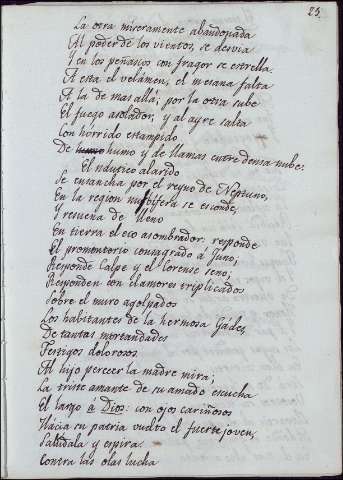 25
La otra miseramente abandonada
Al poder de los vientos, se desvia
Y en los peñascos con fragor se estrella.
A esta el velámen, el mesana falta
A la de mas allá; por la otra sube
El fuego asolador, y al ayre salta
Con hórrido estampido
De humo y de llamas entre densa nube.
El náutico alarido
Se ensancha por el reyno de Neptuno,
En la region nubífera se esconde,
Y resuena de lleno
En tierra el eco asombrador: responde
El promontorio consagrado a Juno;
Responde Calpe y el Lorense seno;
Responden con clamores triplicados
Sobre el muro agolpados
Los habitantes de la hermosa Gádes,
De tantas mortandades
Testigos dolorosos.
Al hijo perecer la madre mira;
La triste amante de su amado escucha
El largo á Dios: con ojos cariñosos
Hácia su patria vuelto el fuerte joven,
Salúdala y espira.
Contra las olas lucha